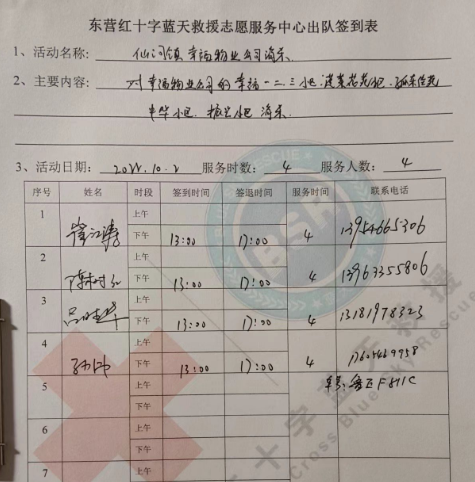 东营红十字蓝天救援志愿服务中心出队签到表
1、活动名称: 仙河镇幸福物业公司消杀
2、主要内容: 对幸福物业公司的幸福一.二.三小区.
中华小区.振兴小区消杀.
3、活动日期: 2022.10.2 服务时数: 4 服务人数: 4
序号 姓名 时段 签到时间 签退时间 服务时间 联系电话
1 上午
下午 13:00 17:00 4 13954665306
2 上午
下午 13:00 17:00 4 13963355806
3 上午
下午 13:00 17:00 4 13181978323
4 上午
下午 13:00 17:00 4
5 上午 车号:鲁EF811C
下午
6 上午
下午
7 上午
BSR
RESCUE
红十字蓝天救援
Cross Blue Sky Rescue